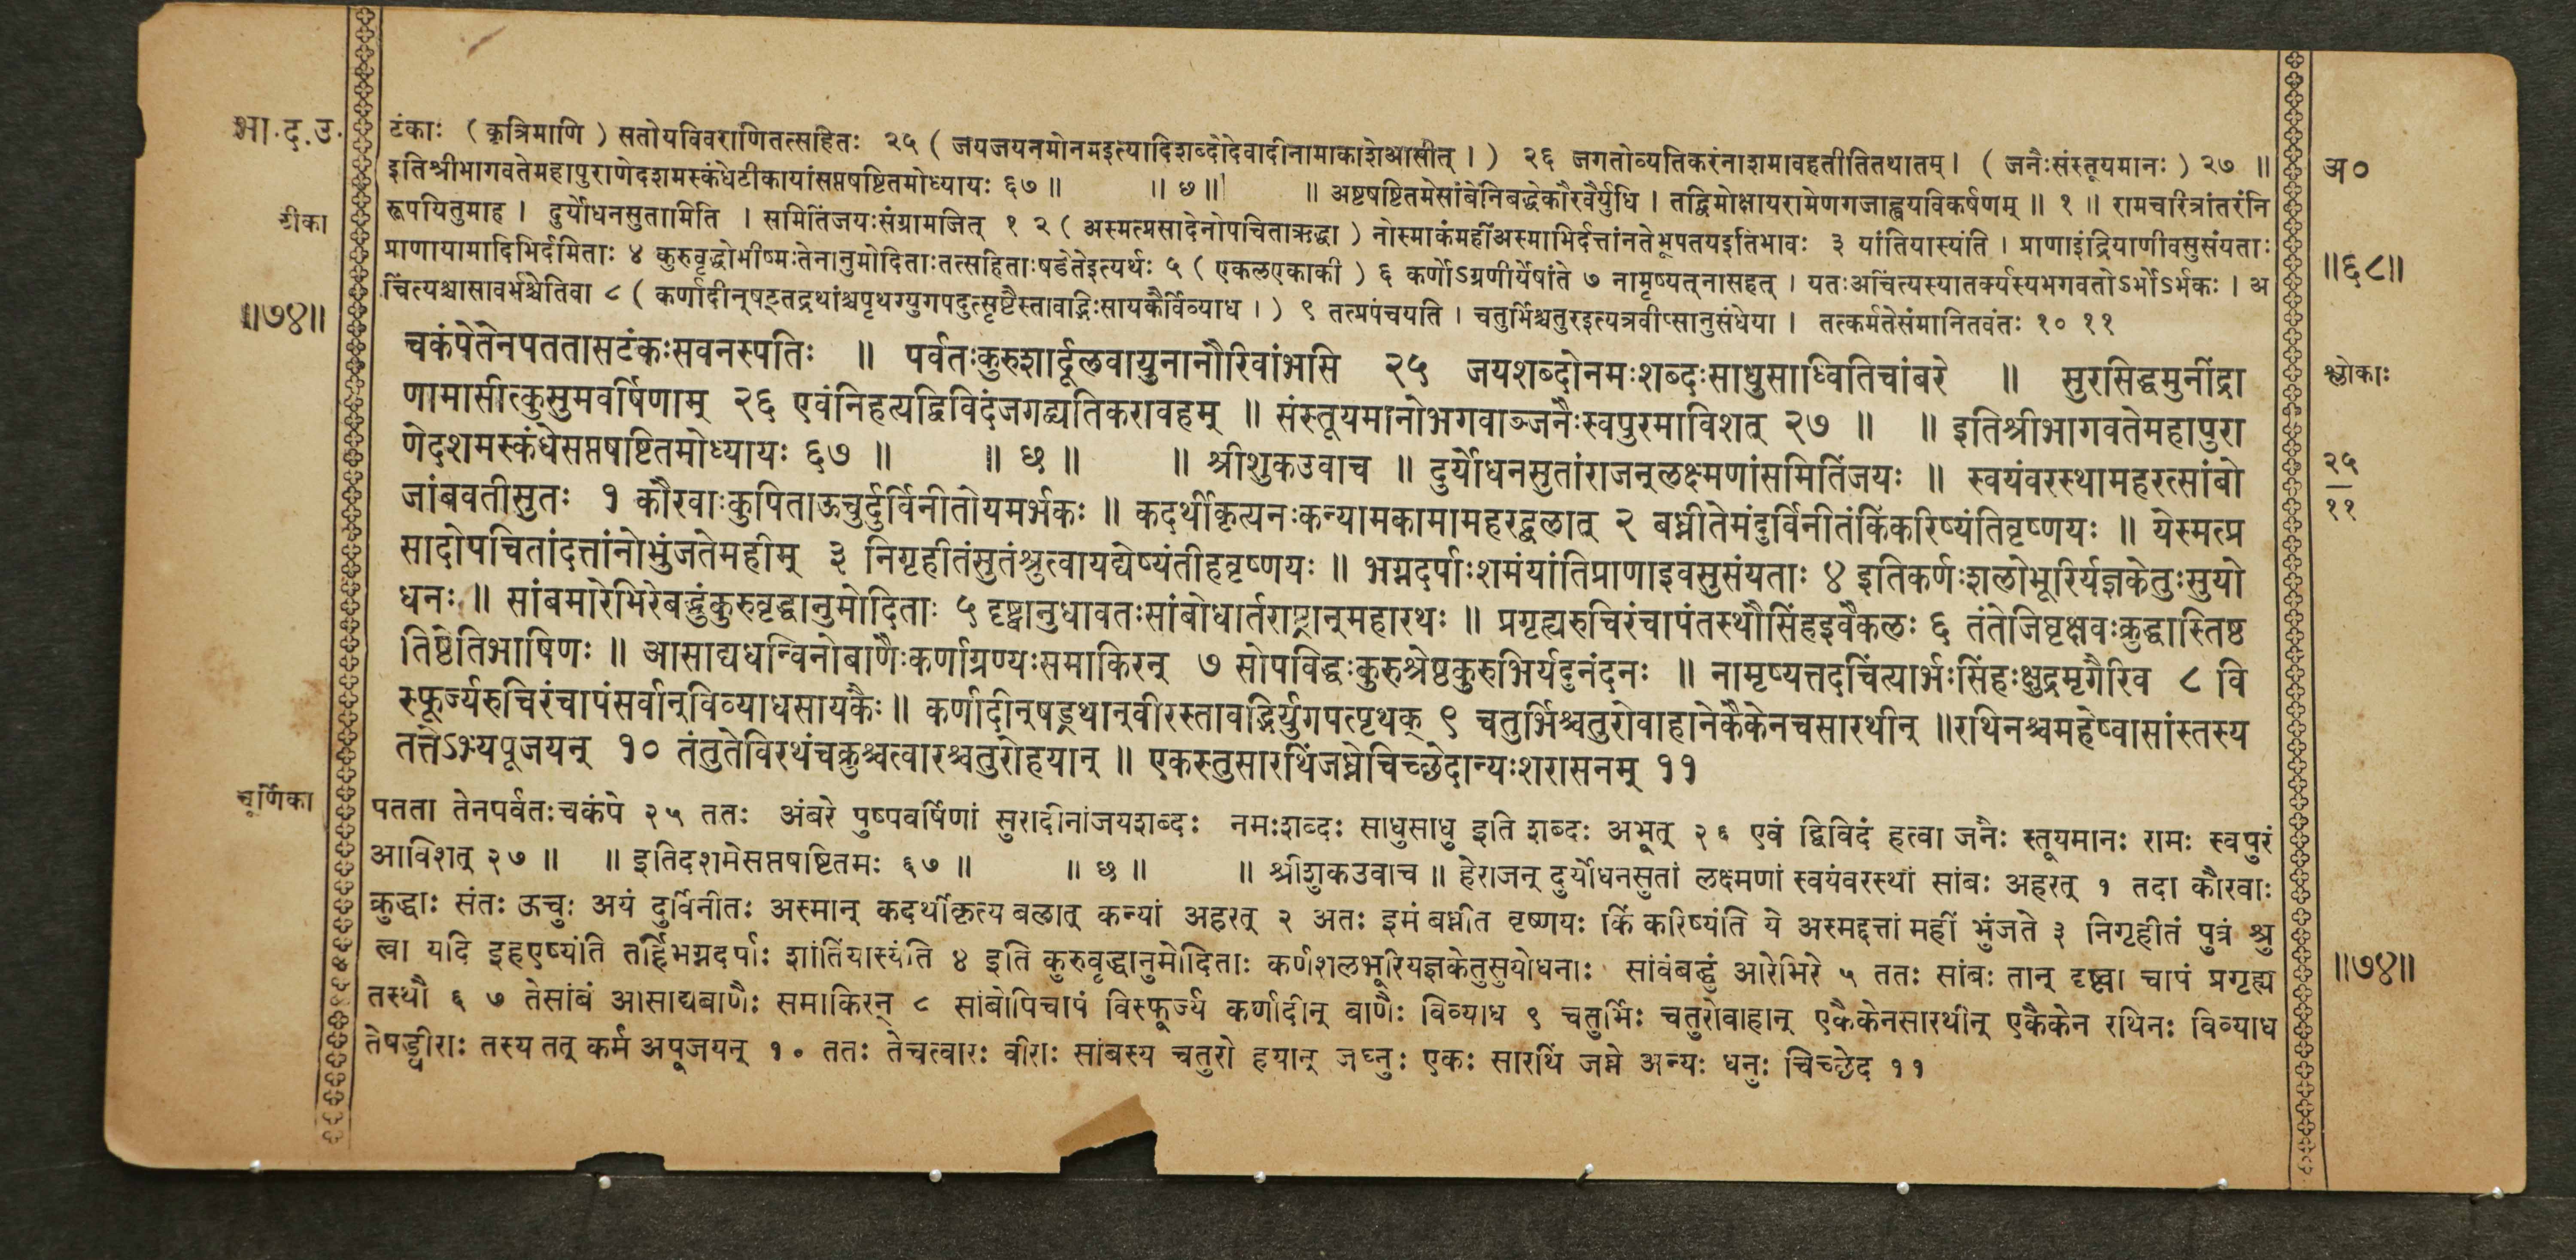 भा.द.उ.
टीका
॥७४॥
चूर्णिका
टंकाः (कृत्रिमाणि) सतोयविवराणितत्सहितः २५ (जयजयनमोनमइत्यादिशब्दोदेवादीनामाकाशेआसीत्।) २६ जगतोव्यतिकरंनाशमावहतीतितथातम्। (जनैःसंस्तूयमानः) २७ ॥
इतिश्रीभागवतेमहापुराणेदशमस्कंधेटीकायांसप्तषष्टितमोध्यायः ६७ ॥ ॥ छ ॥ ॥ अष्टषष्टितमेसांबेनिबद्धेकौरवैर्युधि । तद्विमोक्षायरामेणगजाह्वयविकर्षणम् ॥ १ ॥ रामचरित्रांतरंनि
रूपयितुमाह । दुर्योधनसुतामिति । समितिंजयःसंग्रामजित् १ २ (अस्मत्प्रसादेनोपचिताऋद्धा) नोस्माकंमहींअस्माभिर्दत्तांनतेभूपतयइतिभावः ३ यांतियास्यंति । प्राणाइंद्रियाणीवसुसंयताः
प्राणायामादिभिर्दमिताः ४ कुरुवृद्धोभीष्मःतेनानुमोदिताःतत्सहिताःषडेतेइत्यर्थः ५ (एकलएकाकी) ६ कर्णोऽग्रणीर्येषांते ७ नामृष्यत्नासहत् । यतःअचिंत्यस्यातर्क्यस्यभगवतोऽर्भोऽर्भकः । अ
चिंत्यश्चासावर्भश्चेतिवा ८ (कर्णादीन्षट्तद्रथांश्चपृथग्युगपदुत्सृष्टैस्तावाद्भिःसायकैर्विव्याध ।) ९ तत्प्रपंचयति । चतुर्भिश्चतुरइत्यत्रवीप्सानुसंधेया । तत्कर्मतेसंमानितवंतः १० ११
चकंपेतेनपततासटंकःसवनस्पतिः ॥ पर्वतःकुरुशार्दूलवायुनानौरिवांभसि २५ जयशब्दोनमःशब्दःसाधुसाध्वितिचांबरे ॥ सुरसिद्धमुनींद्रा
णामासीत्कुसुमवर्षिणाम् २६ एवंनिहत्यद्विविदंजगद्व्यतिकरावहम् ॥ संस्तूयमानोभगवाञ्जनैःस्वपुरमाविशत् २७ ॥ ॥ इतिश्रीभागवतेमहापुरा
णेदशमस्कंधेसप्तषष्टितमोध्यायः ६७ ॥ ॥ छ ॥ ॥ श्रीशुकउवाच ॥ दुर्योधनसुतांराजन्लक्ष्मणांसमितिंजयः ॥ स्वयंवरस्थामहरत्सांबो
जांबवतीसुतः १ कौरवाःकुपिताऊचुर्दुर्विनीतोयमर्भकः ॥ कदर्थीकृत्यनःकन्यामकामामहरद्बलात् २ बध्नीतेमंदुर्विनीतंकिंकरिष्यंतिवृष्णयः ॥ येस्मत्प्र
सादोपचितांदत्तांनोभुंजतेमहीम् ३ निगृहीतंसुतंश्रुत्वायद्येष्यंतीहवृष्णयः ॥ भग्नदर्पाःशमंयांतिप्राणाइवसुसंयताः ४ इतिकर्णःशलोभूरिर्यज्ञकेतुःसुयो
धनः ॥ सांबमारेभिरेबद्धुंकुरुवृद्धानुमोदिताः ५ दृष्ट्वानुधावतःसांबोधार्तराष्ट्रान्महारथः ॥ प्रगृह्यरुचिरंचापंतस्थौसिंहइवैकलः ६ तंतेजिघृक्षवःक्रुद्धास्तिष्ठ
तिष्ठेतिभाषिणः ॥ आसाद्यधन्विनोबाणैःकर्णाग्रण्यःसमाकिरन् ७ सोपविद्धःकुरुश्रेष्ठकुरुभिर्यदुनंदनः ॥ नामृष्यत्तदचिंत्यार्भःसिंहःक्षुद्रमृगैरिव ८ वि
स्फूर्ज्यरुचिरंचापंसर्वान्विव्याधसायकैः ॥ कर्णादीन्षड्रथान्वीरस्तावद्भिर्युगपत्पृथक् ९ चतुर्भिश्चतुरोवाहानेकैकेनचसारथीन् ॥रथिनश्चमहेष्वासांस्तस्य
तत्तेऽभ्यपूजयन् १० तंतुतेविरथंचक्रुश्चत्वारश्चतुरोहयान् ॥ एकस्तुसारथिंजघ्नेचिच्छेदान्यःशरासनम् ११
पतता तेनपर्वतःचकंपे २५ ततः अंबरे पुष्पवर्षिणां सुरादीनांजयशब्दः नमःशब्दः साधुसाधु इति शब्दः अभूत् २६ एवं द्विविदं हत्वा जनैः स्तूयमानः रामः स्वपुरं
आविशत् २७ ॥ ॥ इतिदशमेसप्तषष्टितमः ६७ ॥ ॥ छ ॥ ॥ श्रीशुकउवाच ॥ हेराजन् दुर्योधनसुतां लक्ष्मणां स्वयंवरस्थां सांबः अहरत् १ तदा कौरवाः
क्रुद्धाः संतः ऊचुः अयं दुर्विनीतः अस्मान् कदर्थीकृत्य बलात् कन्यां अहरत् २ अतः इमं बध्नीत वृष्णयः किं करिष्यंति ये अस्मद्दत्तां महीं भुंजते ३ निगृहीतं पुत्रं श्रु
त्वा यदि इहएष्यंति तर्हिभग्नदर्पाः शांतिंयास्यंति ४ इति कुरुवृद्धानुमोदिताः कर्णशलभूरियज्ञकेतुसुयोधनाः सांबंबद्धुं आरेभिरे ५ ततः सांबः तान् दृष्ट्वा चापं प्रगृह्य
तस्थौ ६ ७ तेसांबं आसाद्यबाणैः समाकिरन् ८ सांबोपिचापं विस्फूर्ज्य कर्णादीन् बाणैः विव्याध ९ चतुर्भिः चतुरोवाहान् एकैकेनसारथीन् एकैकेन रथिनः विव्याध
तेषड्वीराः तस्य तत् कर्म अपूजयन् १० ततः तेचत्वारः वीराः सांबस्य चतुरो हयान् जघ्नुः एकः सारथिं जघ्ने अन्यः धनुः चिच्छेद ११
अ०
॥६८॥
श्लोकाः
२५
११
॥७४॥